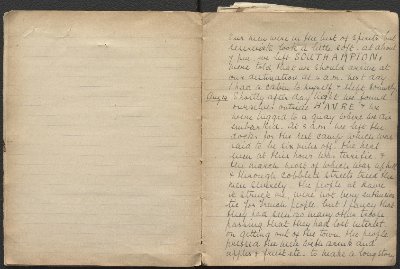 Our men were in the best of spirits but
reservists look a little soft. at about
5 p.m. we left SOUTHAMPTON,
were told that we should arrive at
our destination at 2 a.m. next day
I had a cabin to myself & slept soundly
Aug 14 Shortly after day light we found
ourselves outside HAVRE & we
were tugged to a quay where we dis
embarked. At 8 a.m. we left the
docks for the rest camp which was
said to be six miles off. The heat
even at this hour was terrific &
the march most of which was up hill
& through cobbled streets tried the
men severely. The people at Havre
it struck me were not very enthusias
tic for French people. but I fancy that
they had seen so many other troops
passing that they had lost interest.
on getting out of the town the people
pressed the men with drink and
apples & fruit etc. to make a long story